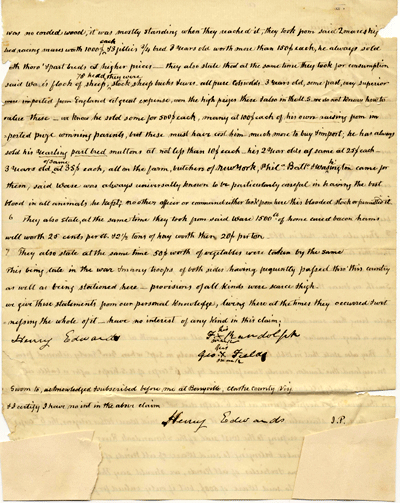 was no corded wood, it was mostly standing when they reached it, they took from said 2 mares they
bred racing mares worth 1000$ each & 3 fillies 3/4 bred 3 years old worth more than 150$ each, he always sold
with thoro' & part breds at higher prices — they also state that at the same time they took for consumption
said Ware's flock of sheep, 78 head, they were stock sheep bucks & ewes, all pure Cotswolds 3 years old, some past, very superior
were imported from England at great expense, won the high prizes there & also in the U.S. we do not know how to
value these — we know he sold some for 500$ each, many at 100$ each of his own raising from im-
ported prize winning parents, but these must have cost him much more to buy & import, he has always
sold his yearling part bred muttons at not less than 10$ each — his 2 years olds of same at 25$ each —
3 years old of same at 35$ each, all on the farm, butchers of New York, Phil.ª Balt.º & Washington came for
them, said Ware was always universally known to be particularly careful in having the best
blood in all animals he kept,
6 They also state, at the same time they took from said Ware 1500 lbs of home cured bacon hams
well worth 25 cents per lb. & 2½ tons of hay worth then 20$ per ton
7 They also state at the same time 50$ worth of vegetables were taken by the same
This being late in the war & many troops of both sides having frequently passed thro' this country
as well as being stationed here — provisions of all kinds were scarce & high.
we give these statements from our personal knowledge, living there at the times they occurred & wit-
nessing the whole of it — have no interest of any kind in this claim,
Henry Edwards
his
Randolph
mark
his
Geo. X Fields
mark
Sworn to, acknowledged & subscribed before me at Berryville, Clarke County Virg.
& I certify I have no int in the above claim
Henry Edwards J.P.